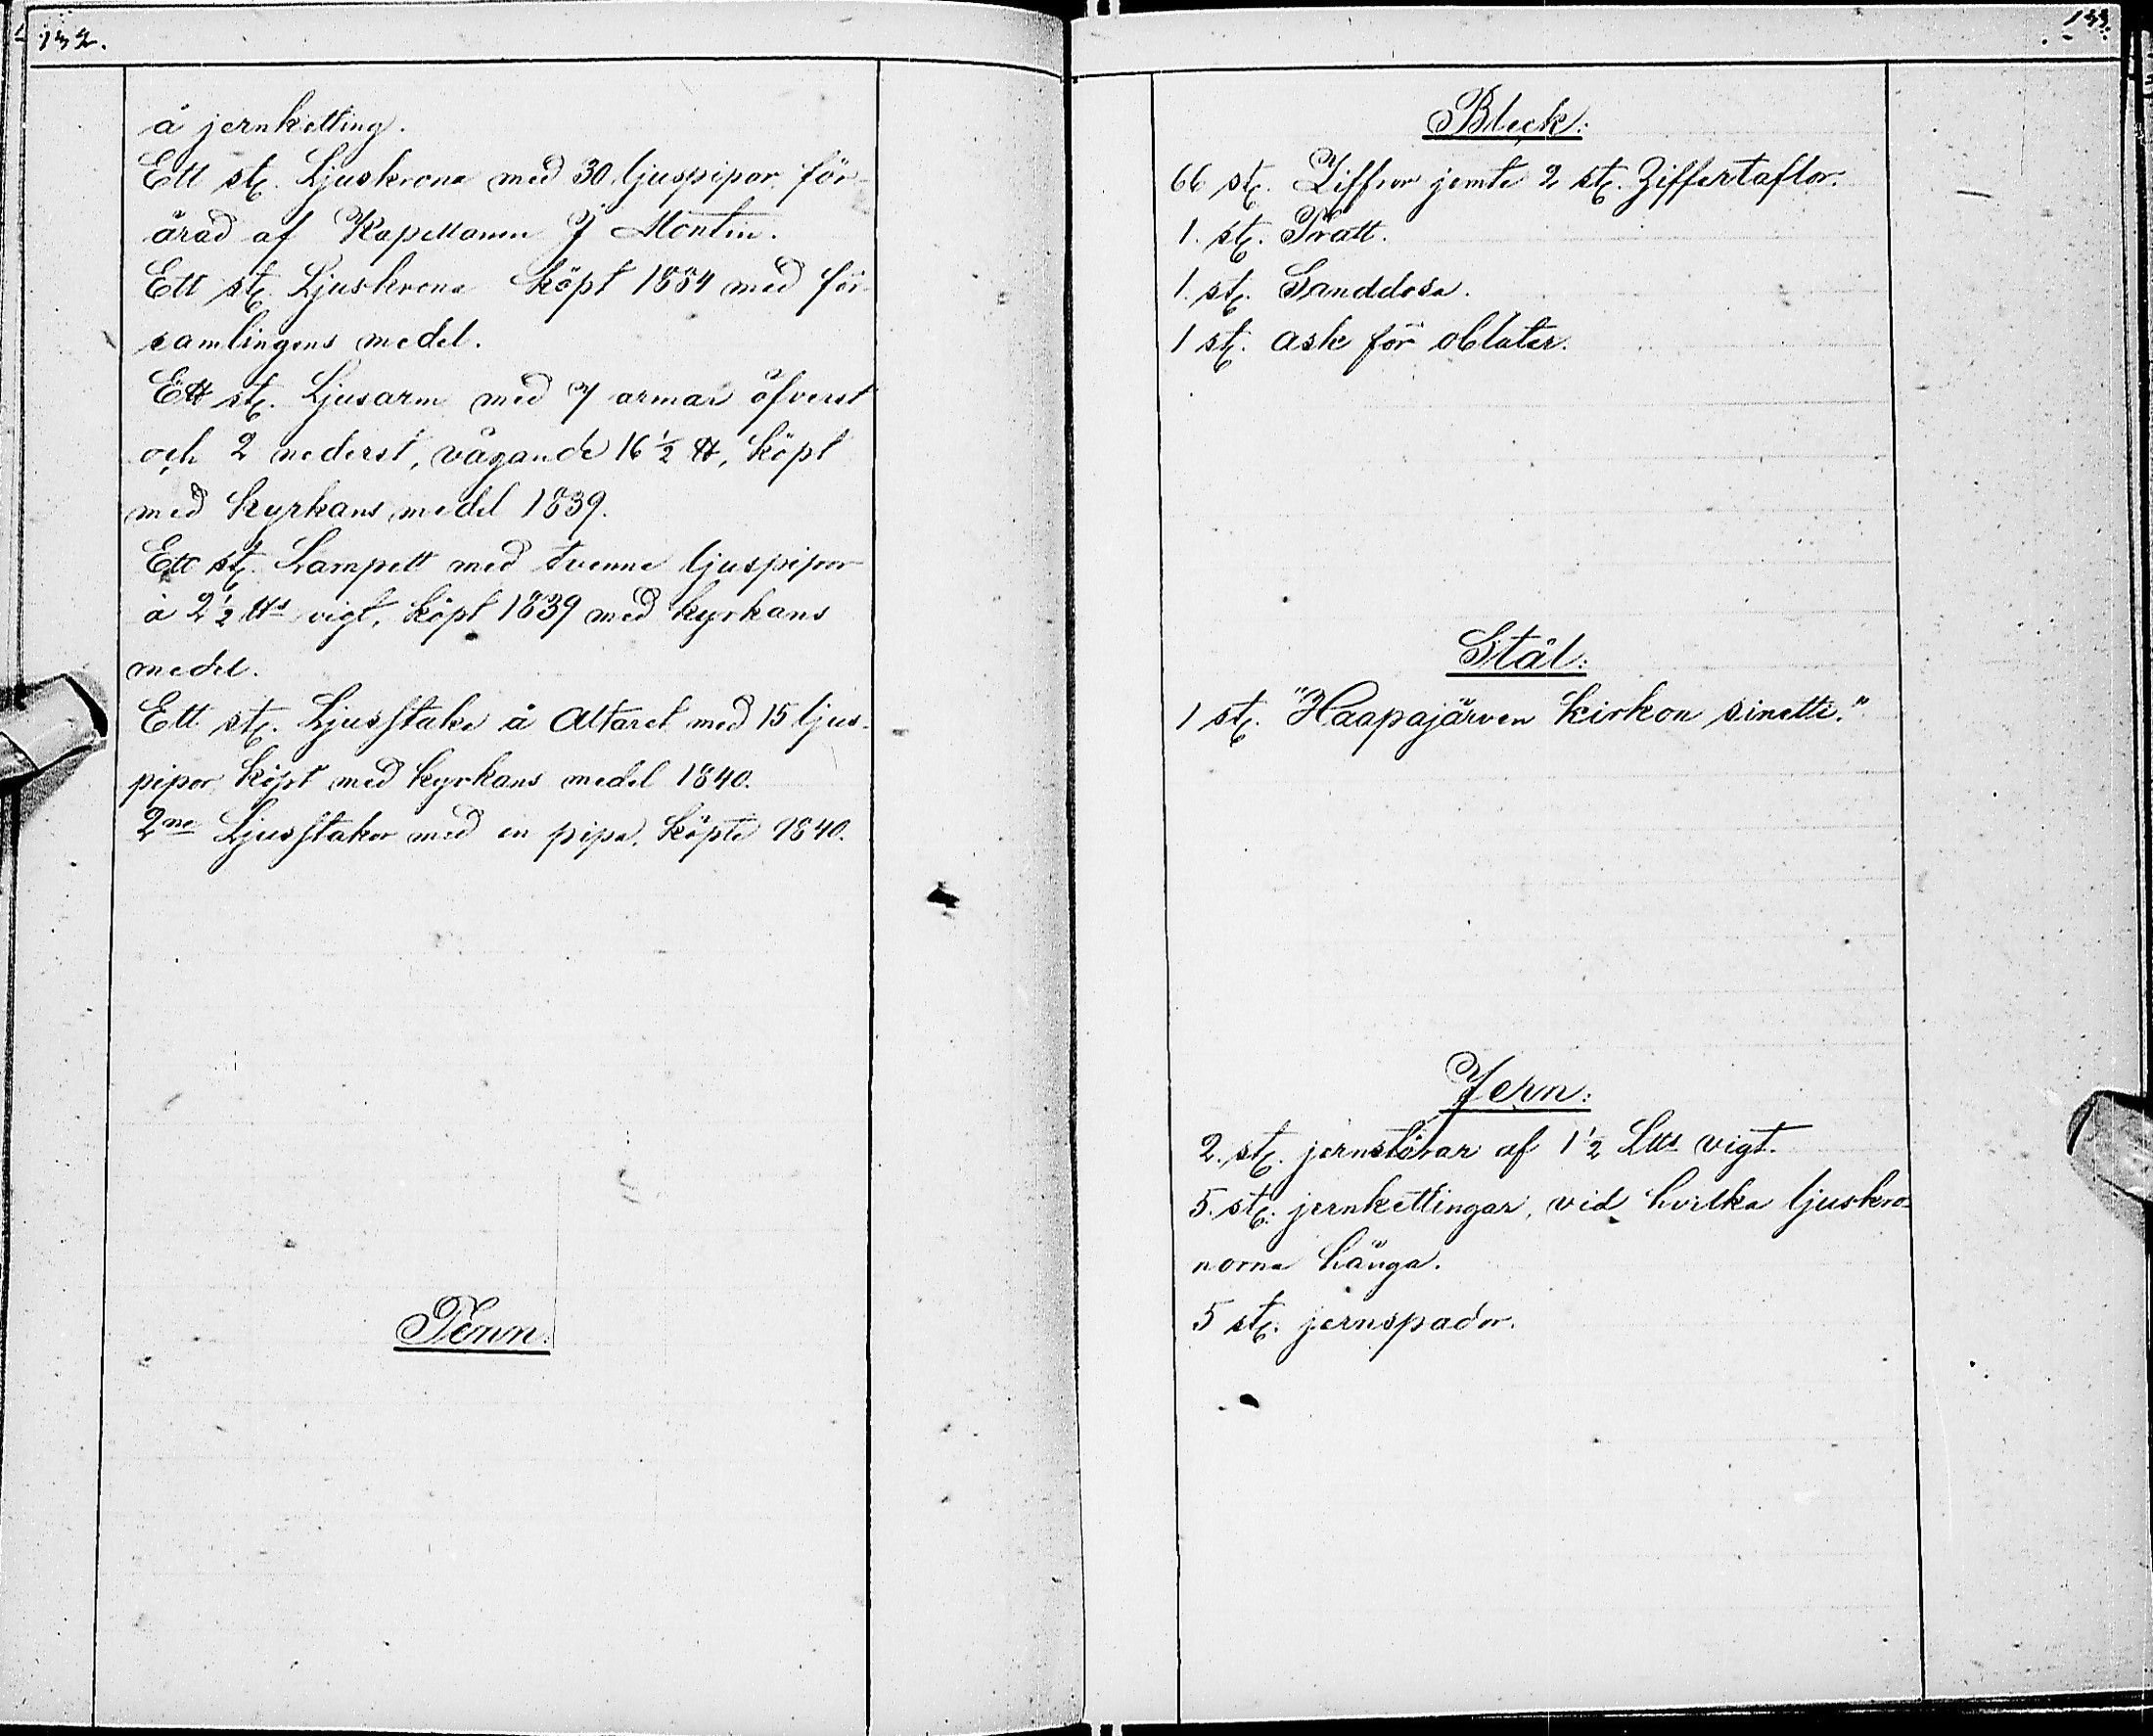 132.
å jernketting.
Ett st. Ljuskrona med 30 ljuspipor för-
ärad af Kapellanen J Montin.
Ett st. Ljuskrona köpt 1884 med för-
samlingens medel.
Ett st. Ljusarm med 7 armar öfverst
och 2 nederst, vägande 16 1/2 ℔, köpt
med kyrkans medel 1839.
Ett st. Lampett med tvenne ljuspipor
à 2 1/2 ℔s vigt, köpt 1839 med kyrkans
medel.
Ett st. Ljusstake å Altaret med 15 ljus-
pipor köpt med kyrkans medel 1840.
2ne Ljusstakar med en pipa, köpta 1840.
Tenn:
133.
Bleck:
66 st. Ziffror jemte 2 st. Ziffertaflor.
1. st. Tratt.
1. st. Sanddosa.
1 st. ask för oblater.
Stål:
1 st. "Haapajärven kirkon sinetti."
Jern:
2. st. jernstörar af 1 1/2 L℔s vigt.
5. st. jernkettingar, vid hvilka ljuskro-
norna hänga.
5 st. jernspador.